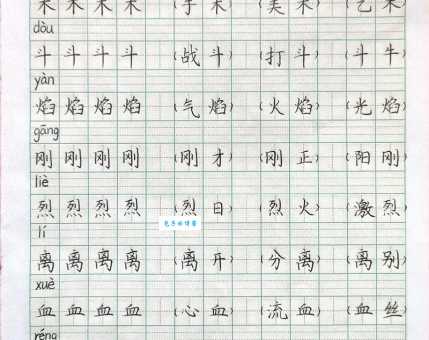 术 术 术 术 (手 术) (美 术) (艺 术)
dòu
斗 斗 斗 斗 (战 斗) (打 斗) (斗 牛)
yàn
焰 焰 焰 焰 (气 焰) (火 焰) (光 焰)
gāng
刚 刚 刚 刚 (刚 才) (刚 正) (阳 刚)
liè
烈 烈 烈 烈 (烈 日) (烈 火) (激 烈)
lí
离 离 离 离 (离 开) (分 离) (离 别)
xuè
血 血 血 血 (心 血) (流 血) (血 丝)
réng